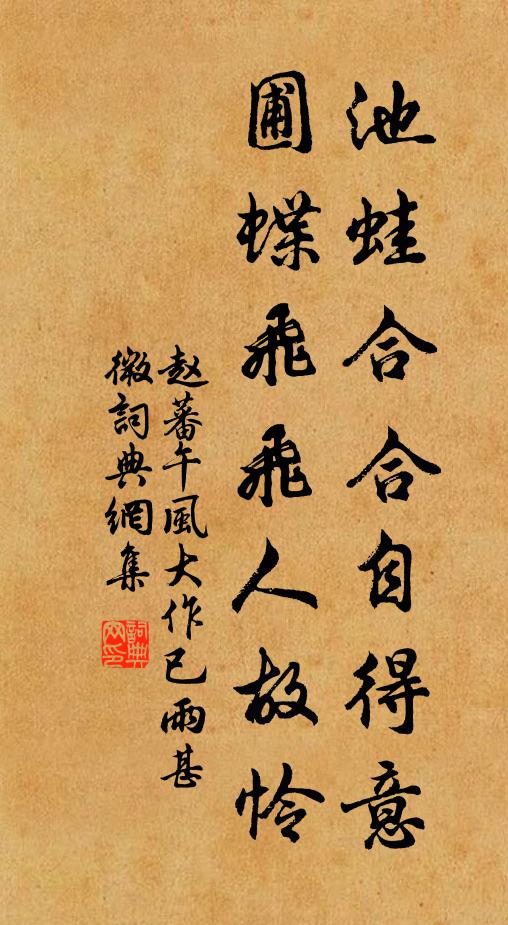 池蛙合合自得意
圃蝶飛飛人故怜
赵蕃午風大作已雨甚
微詞典網集
詞典
网印